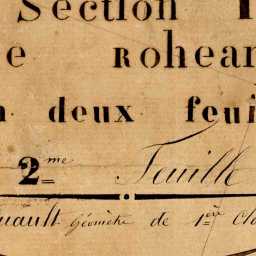 Section
e Rohear
n deux feui
2me Feuille
uault Géomètre de 1ère Cla